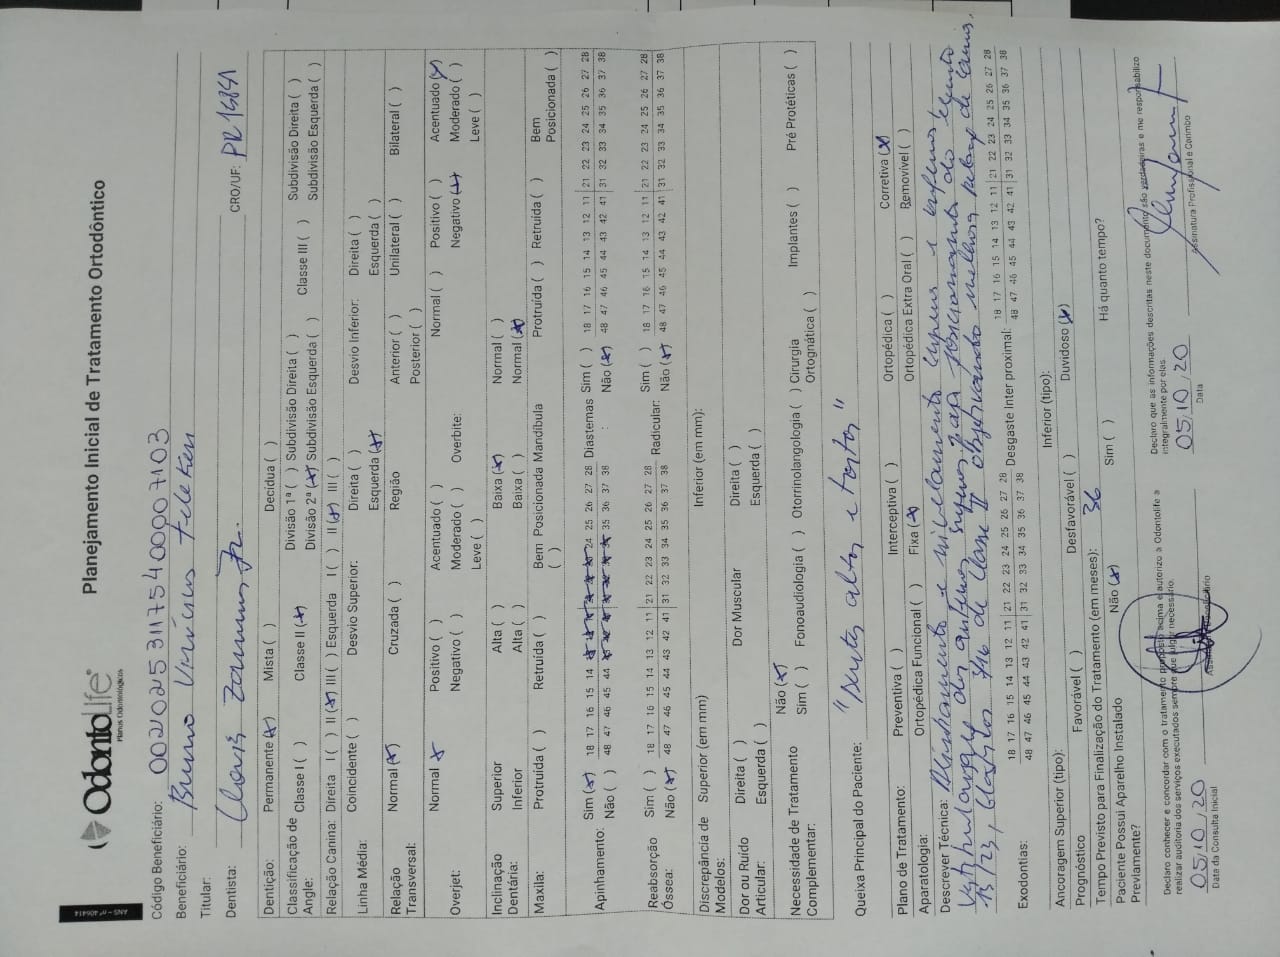 OdontoLife
Planos Odontológicos
ANS - nº 406414
Planejamento Inicial de Tratamento Ortodôntico
Código Beneficiário: 00202531175400007103
Beneficiário: Bruno Vinícius
Titular:
Dentista: Clovis CRO/UF: PR
Dentição: Permanente (x) Mista ( ) Decídua ( )
Classificação de Angle: Classe I ( ) Classe II (x) Divisão 1ª ( ) Subdivisão Direita ( ) Classe III ( ) Subdivisão Direita ( )
Divisão 2ª (x) Subdivisão Esquerda ( ) Subdivisão Esquerda ( )
Relação Canina: Direita I ( ) II (x) III ( ) Esquerda I ( ) II (x) III ( )
Linha Média: Coincidente ( ) Desvio Superior: Direita ( ) Desvio Inferior: Direita ( )
Esquerda (x) Esquerda ( )
Relação Transversal: Normal (x) Cruzada ( ) Região Anterior ( ) Unilateral ( ) Bilateral ( )
Posterior ( )
Overjet: Normal x Positivo ( ) Acentuado ( ) Overbite: Normal ( ) Positivo ( ) Acentuado (x)
Negativo ( ) Moderado ( ) Negativo (x) Moderado ( )
Leve ( ) Leve ( )
Inclinação Dentária: Superior Alta ( ) Baixa (x) Normal ( )
Inferior Alta ( ) Baixa ( ) Normal (x)
Maxila: Protruída ( ) Retruída ( ) Bem Posicionada ( ) Mandíbula Protruída ( ) Retruída ( ) Bem Posicionada ( )
Apinhamento: Sim (x) 18 17 16 15 14 24 25 26 27 28 Diastemas Sim ( ) 18 17 16 15 14 13 12 11 21 22 23 24 25 26 27 28
Não ( ) 48 47 46 45 44 35 36 37 38 : Não (x) 48 47 46 45 44 43 42 41 31 32 33 34 35 36 37 38
Reabsorção Óssea: Sim ( ) 18 17 16 15 14 13 12 11 21 22 23 24 25 26 27 28 Radicular: Sim ( ) 18 17 16 15 14 13 12 11 21 22 23 24 25 26 27 28
Não (x) 48 47 46 45 44 43 42 41 31 32 33 34 35 36 37 38 Não (x) 48 47 46 45 44 43 42 41 31 32 33 34 35 36 37 38
Discrepância de Modelos: Superior (em mm) Inferior (em mm):
Dor ou Ruído Articular: Direita ( ) Dor Muscular Direita ( )
Esquerda ( ) Esquerda ( )
Necessidade de Tratamento Complementar: Não (x)
Sim ( ) Fonoaudiologia ( ) Otorrinolangologia ( ) Cirurgia Ortognática ( ) Implantes ( ) Pré Protéticas ( )
Queixa Principal do Paciente: "Dentes altos e tortos"
Plano de Tratamento: Preventiva ( ) Interceptiva ( ) Ortopédica ( ) Corretiva (x)
Aparatologia: Ortopédica Funcional ( ) Fixa (x) Ortopédica Extra Oral ( ) Removível ( )
Descrever Técnica: Alinhamento e nivelamento superior e inferior,
dos anteros para posicionamento do elemento
13/23, Elásticos 3/16 de Classe II objetivando melhora relação de caninos.
Exodontias: 18 17 16 15 14 13 12 11 21 22 23 24 25 26 27 28 Desgaste Inter proximal: 18 17 16 15 14 13 12 11 21 22 23 24 25 26 27 28
48 47 46 45 44 43 42 41 31 32 33 34 35 36 37 38 48 47 46 45 44 43 42 41 31 32 33 34 35 36 37 38
Ancoragem Superior (tipo): Inferior (tipo):
Prognóstico Favorável ( ) Desfavorável ( ) Duvidoso (x)
Tempo Previsto para Finalização do Tratamento (em meses): 36
Paciente Possui Aparelho Instalado Previamente? Não (x) Sim ( ) Há quanto tempo?
Declaro conhecer e concordar com o tratamento proposto acima e autorizo a Odontolife a
realizar auditoria dos serviços executados sempre que julgar necessário.
Declaro que as informações descritas neste documento são verdadeiras e me responsabilizo
integralmente por elas.
05/10/20
Data da Consulta Inicial
05/10/20
Data
Assinatura Profissional e Carimbo